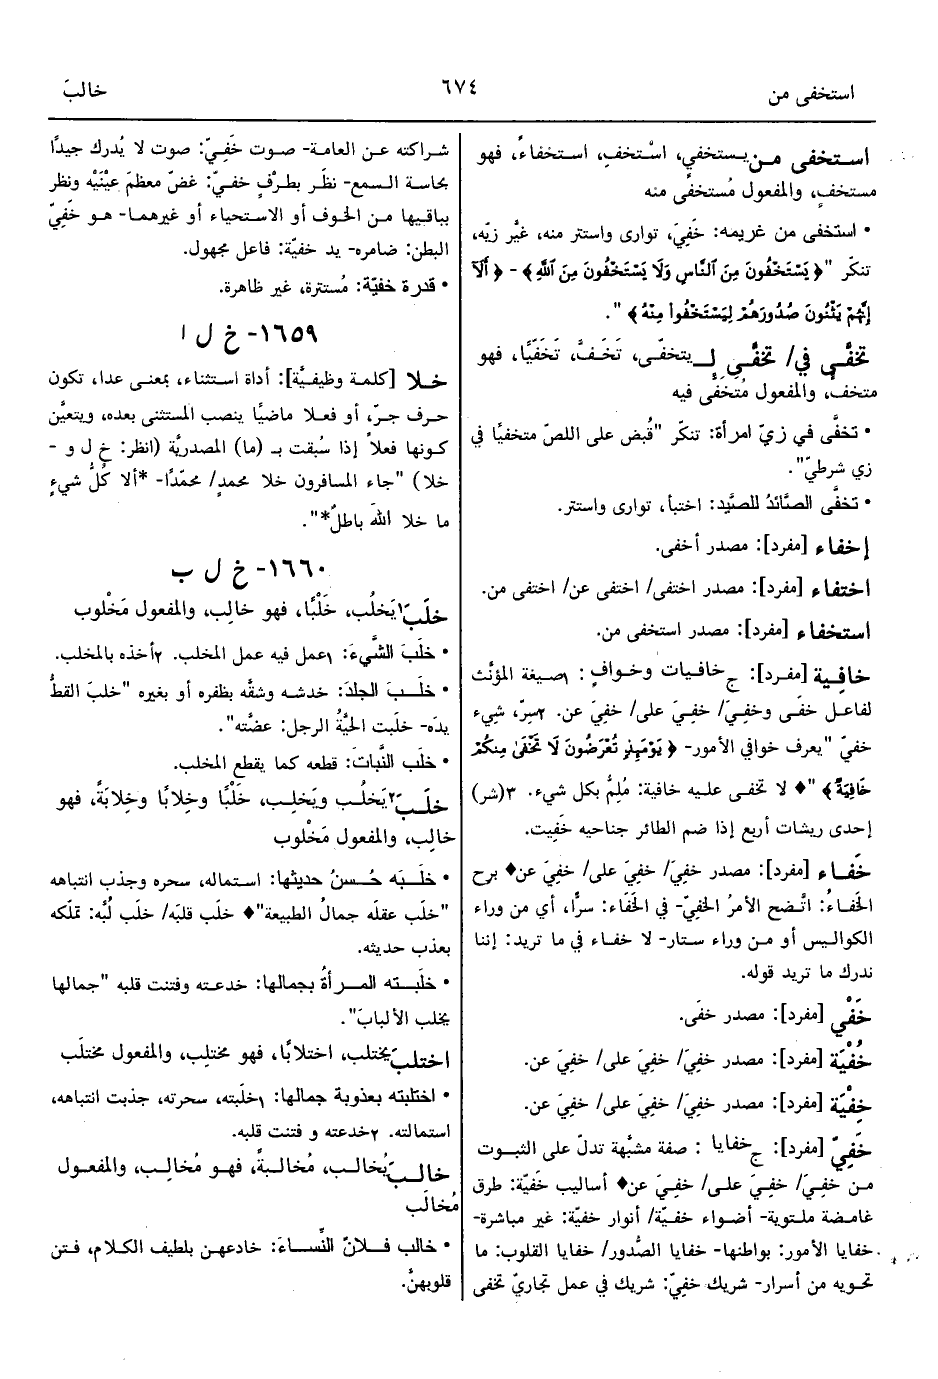 استخفى من
٦٧٤
خالبَ
استخفى من يستخفي، اسْتخفِ، استخفاءً، فهو
مستخفٍ، والمفعول مُستخفى منه
• استخفى من غريمه: خَفِيَ، توارى واستتر منه، غيَّر زيّه،
تنكّر "﴿ يَسْتَخْفُونَ مِنَ النَّاسِ وَلَا يَسْتَخْفُونَ مِنَ اللَّهِ ﴾ - ﴿ أَلَا
إِنَّهُمْ يَثْنُونَ صُدُورَهُمْ لِيَسْتَخْفُوا مِنْهُ ﴾ ".
تخفَّى في/ تخفَّى لِـ يتخفّى، تَخَفَّ، تَخَفِّيًا، فهو
متخفٍ، والمفعول مُتخفّى فيه
• تخفَّى في زيّ امرأة: تنكّر "قُبض على اللصّ متخفيًا في
زي شرطيّ".
• تخفَّى الصَّائدُ للصَّيد: اختبأ، توارى واستتر.
إخفاء [مفرد]: مصدر أخفى.
اختفاء [مفرد]: مصدر اختفى/ اختفى عن/ اختفى من.
استخفاء [مفرد]: مصدر استخفى من.
خافِية [مفرد]: ج خافيات وخوافٍ : ١صيغة المؤنَّث
لفاعل خفَى وخفِيَ/ خفِيَ على/ خفِيَ عن. ٢سِرّ، شيء
خفيّ "يعرف خوافي الأمور- ﴿ يَوْمَئِذٍ تُعْرَضُونَ لَا تَخْفَى مِنكُمْ
خَافِيَةٌ ﴾ "♦ لا تخفى عليه خافية: مُلِمٌّ بكل شيء. ٣(شر)
إحدى ريشات أربع إذا ضم الطائر جناحيه خَفِيت.
خَفاء [مفرد]: مصدر خفِيَ/ خفِيَ على/ خفِيَ عن♦ برح
الخفاءُ: اتَّضح الأمرُ الخفيّ- في الخَفَاء: سرًّا، أي من وراء
الكواليس أو من وراء ستار- لا خفاء في ما تريد: إننا
ندرك ما تريد قوله.
خَفْي [مفرد]: مصدر خفَى.
خُفْيَة [مفرد]: مصدر خفِيَ/ خفِيَ على/ خفِيَ عن.
خِفْيَة [مفرد]: مصدر خفِيَ/ خفِيَ على/ خفِيَ عن.
خَفِيّ [مفرد]: ج خفايا : صفة مشبَّهة تدلّ على الثبوت
من خفِيَ/ خفِيَ على/ خفِيَ عن♦ أساليب خَفيّة: طرق
غامضة ملتوية- أضواء خفيّة/ أنوار خفيّة: غير مباشرة-
خفايا الأمور: بواطنها- خفايا الصُّدور/ خفايا القلوب: ما
تحويه من أسرار- شريك خفيّ: شريك في عمل تجاريّ تخفى
شراكته عن العامة- صوت خَفِيّ: صوت لا يُدرك جيدًا
بحاسة السمع- نظَر بطرْفٍ خفيّ: غضّ معظمَ عيْنَيْه ونظر
بباقيها من الخوف أو الاستحياء أو غيرهما- هو خَفِيّ
البطن: ضامره- يد خفيّة: فاعل مجهول.
• قدرة خفيّة: مُستترة، غير ظاهرة.
١٦٥٩- خ ل ا
خلا [كلمة وظيفيَّة]: أداة استثناء، بمعنى عدا، تكون
حرف جرّ، أو فعلا ماضيًا ينصب المستثنى بعده، ويتعيَّن
كونها فعلاً إذا سُبقت بـ (ما) المصدريَّة (انظر: خ ل و -
خلا) "جاء المسافرون خلا محمدٍ/ محمّدًا- *ألا كُلُّ شيءٍ
ما خلا اللهَ باطلٌ*".
١٦٦٠- خ ل ب
خلَبَ١ يَخلُب، خَلْبًا، فهو خالِب، والمفعول مَخْلوب
• خلَبَ الشَّيءَ: ١عمل فيه عمل المخلب. ٢أخذه بالمخلب.
• خلَبَ الجلدَ: خدشه وشقَّه بظفره أو بغيره "خلبَ القطُّ
يدَه- خلَبت الحيَّةُ الرجل: عضّته".
• خلَب النَّباتَ: قطعه كما يقطع المخلب.
خلَبَ٢ يَخلُب ويَخلِب، خَلْبًا وخِلابًا وخِلابَةً، فهو
خالِب، والمفعول مَخْلوب
• خلَبَه حُسنُ حديثها: استماله، سحره وجذب انتباهه
"خلَب عقلَه جمالُ الطبيعة"♦ خلَب قلبَه/ خلَب لُبَّه: تملّكه
بعذب حديثه.
• خلَبته المرأةُ بجمالها: خدعته وفتنت قلبه "جمالها
يخلب الألبابَ".
اختلبَ يختلب، اختلابًا، فهو مختلِب، والمفعول مختلَب
• اختلبته بعذوبة جمالها: ١خلَبته، سحرته، جذبت انتباهه،
استمالته. ٢خدعته و فتنت قلبه.
خالبَ يُخالب، مُخالبةً، فهو مُخالِب، والمفعول
مُخالَب
• خالب فلانٌ النِّساءَ: خادعهن بلطيف الكلام، فتن
قلوبهنُ.